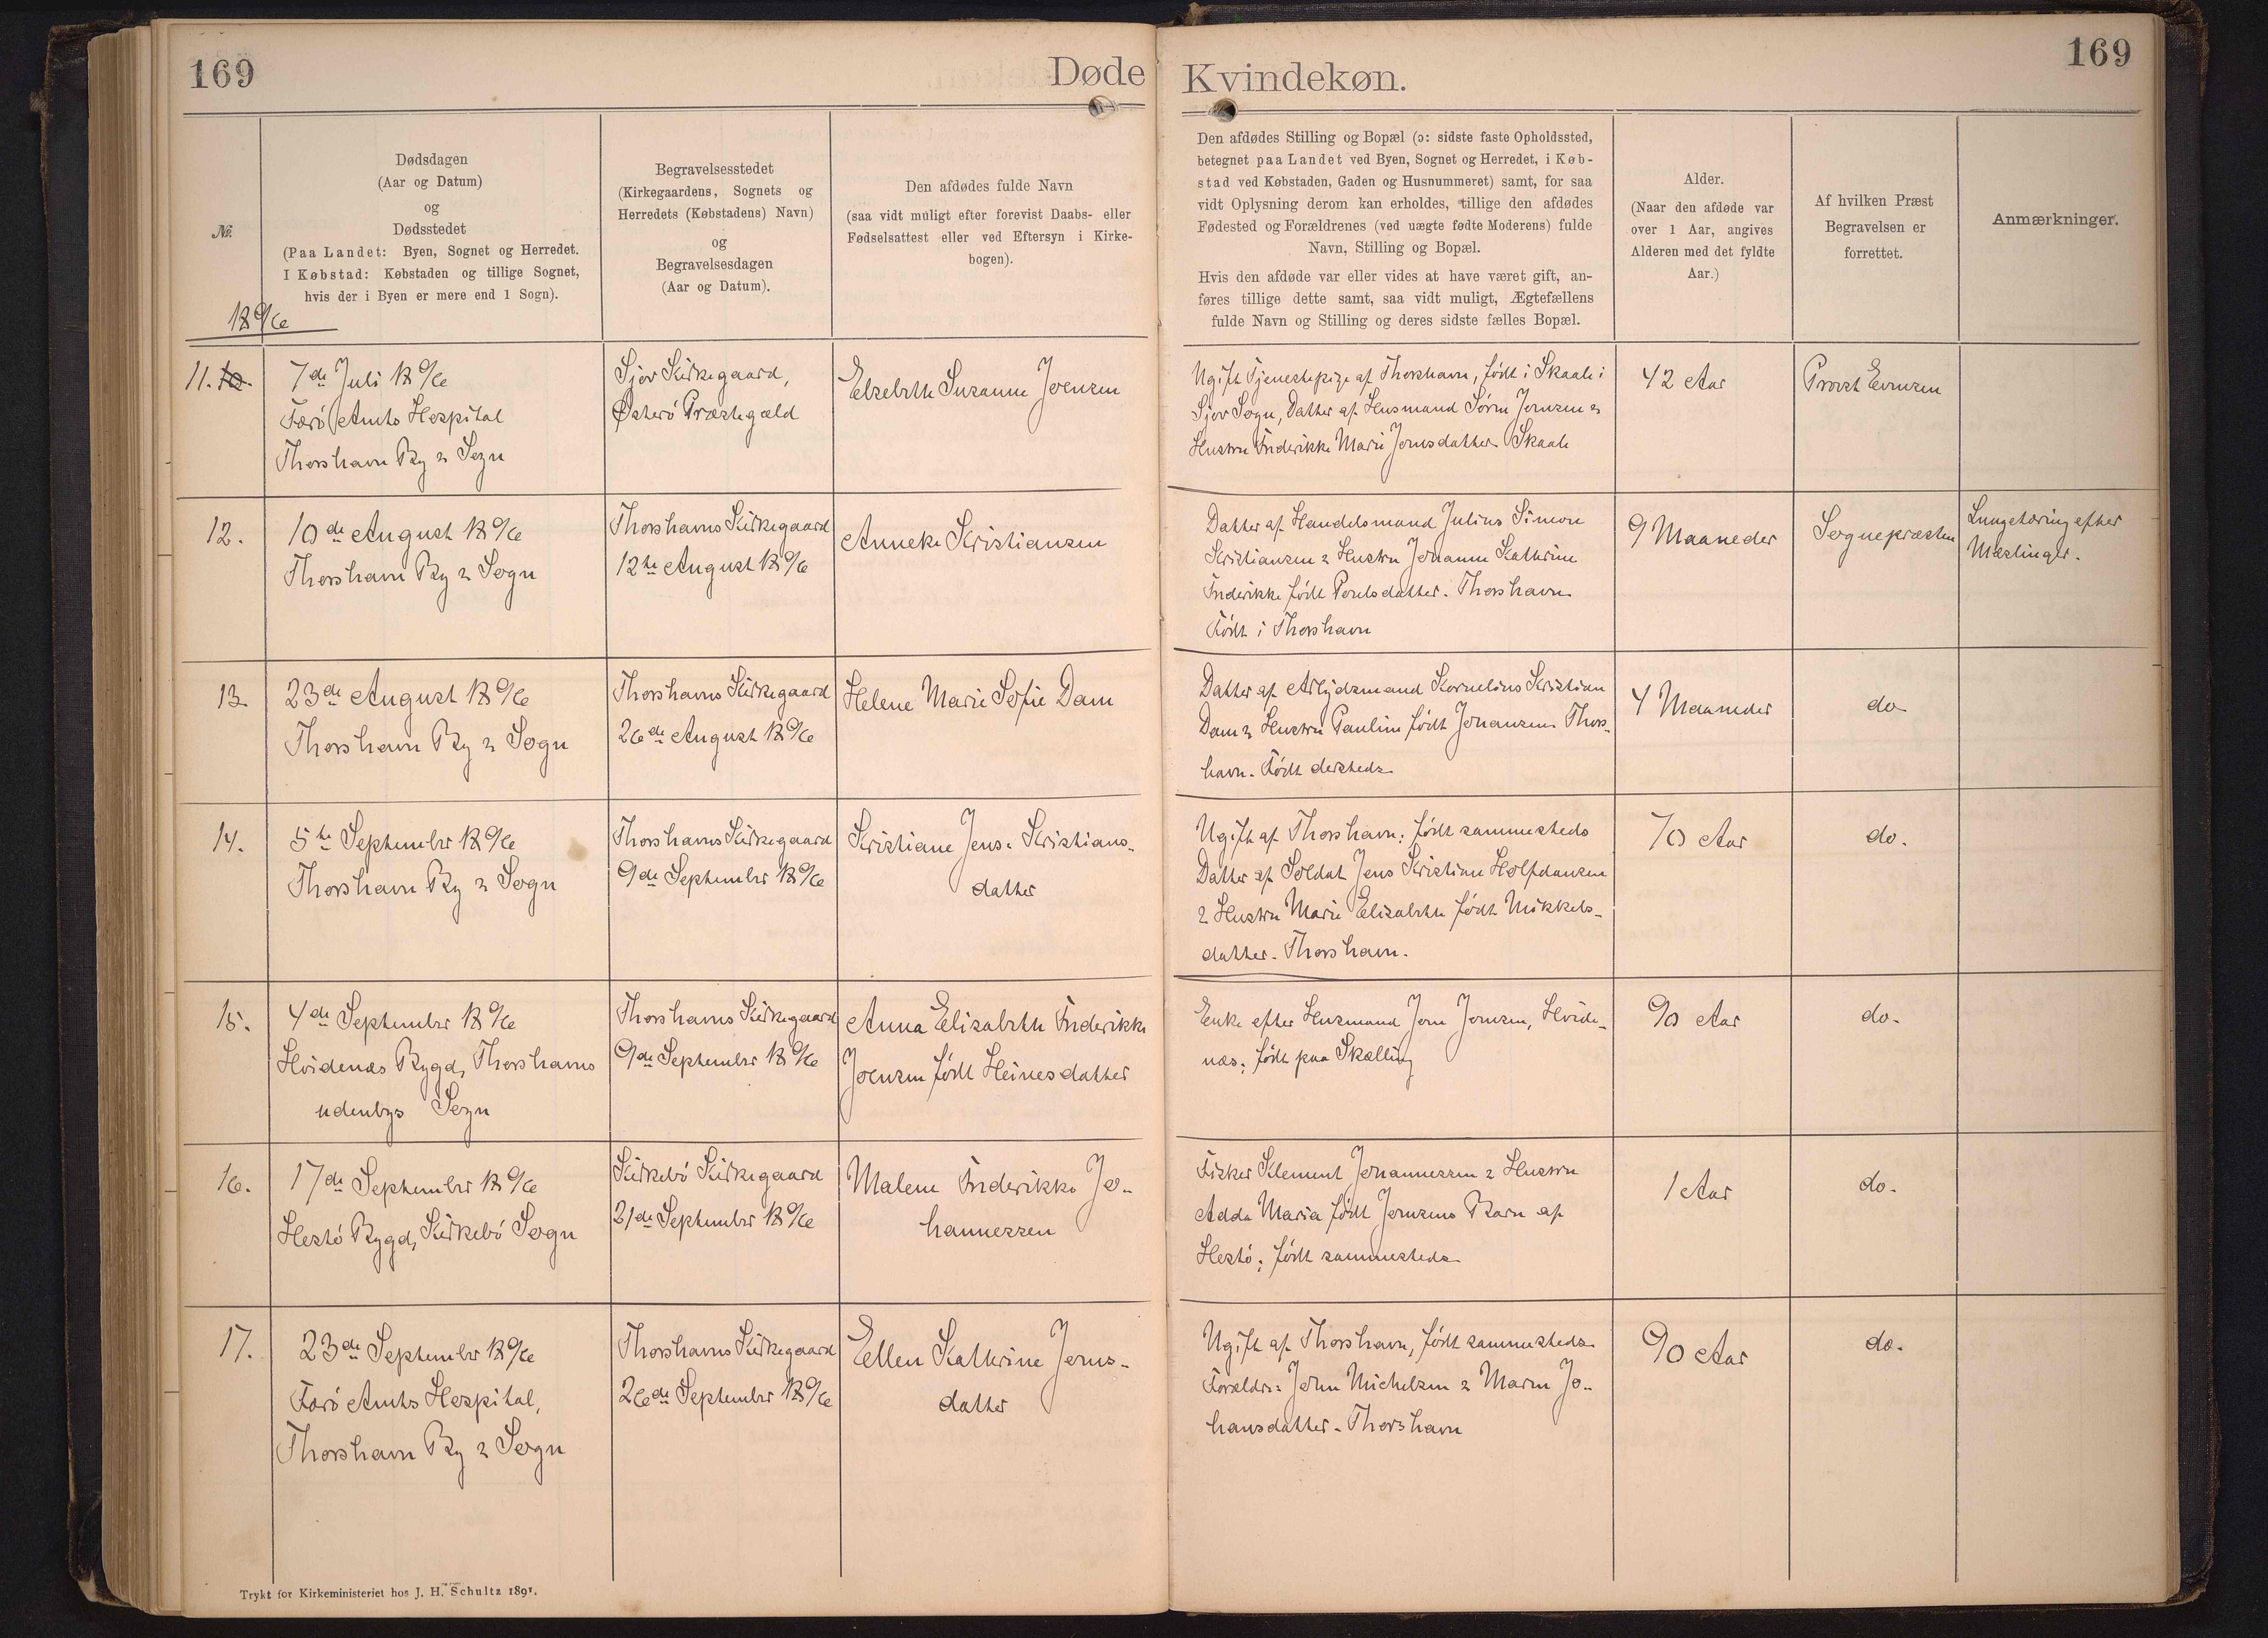 169
Døde
Kvindekøn.
169
Nr.
Dødsdagen
(Aar og Datum)
og
Dødsstedet
(Paa Landet: Byen, Sognet og Herredet.
I Købstad: Købstaden og tillige Sognet,
hvis der i Byen er mere end 1 Sogn).
Begravelsesstedet
(Kirkegaardens, Sognets og
Herredets (Købstadens) Navn)
og
Begravelsesdagen
(Aar og Datum).
Den afdødes fulde Navn
(saa vidt muligt efter forevist Daabs- eller
Fødselsattest eller ved Eftersyn i Kirke-
bogen).
Den afdødes Stilling og Bopæl (ɔ: sidste faste Opholdssted,
betegnet paa Landet ved Byen, Sognet og Herredet, i Køb-
stad ved Købstaden, Gaden og Husnummeret) samt, for saa
vidt Oplysning derom kan erholdes, tillige den afdødes
Fødested og Forældrenes (ved uægte fødte Moderens) fulde
Navn, Stilling og Bopæl.
Hvis den afdøde var eller vides at have været gift, an-
føres tillige dette samt, saa vidt muligt, Ægtefællens
fulde Navn og Stilling og deres sidste fælles Bopæl.
Alder.
(Naar den afdøde var
over 1 Aar, angives
Alderen med det fyldte
Aar.)
Af hvilken Præst
Begravelsen er
forrettet.
Anmærkninger.
1896
11. 10.
7de Juli 1896
Færö Amts Hospital
Thorshavn By & Sogn
Sjov Kirkegaard,
Østerö Præstegæld
Elsebeth Susanne Joensen
Ugift Tjenestepige af Thorshavn, født i Skaale i
Sjov Sogn, Datter af Husmand Sören Joensen &
Hustru Frederikke Marie Joensdatter. Skaale
42 Aar
Provst Evensen
12.
10de August 1896
Thorshavn By & Sogn
Thorshavns Kirkegaard
12te August 1896
Anneke Kristiansen
Datter af Handelsmand Julius Simon
Kristiansen & Hustru Johanne Kathrine
Frederikke født Poulsdatter. Thorshavn
Født i Thorshavn
9 Maaneder
Sognepræsten
Lungetæring efter
Mæslinger.
13.
23de August 1896
Thorshavn By & Sogn
Thorshavns Kirkegaard
26de August 1896
Helene Marie Sofie Dam
Datter af Arbejdsmand Kornelius Kristian
Dam & Hustru Pauline født Johansen. Thors-
havn. Født dersteds
4 Maaneder
do
14.
5te September 1896
Thorshavn By & Sogn
Thorshavns Kirkegaard
9de September 1896
Kristiane Jens-Kristians-
datter
Ugift af Thorshavn; født sammesteds
Datter af Soldat Jens Kristian Holfdansen
& Hustru Marie Elisabeth født Mikkels-
datter. Thorshavn.
70 Aar
do.
15.
4de September 1896
Hvidenæs Bygd, Thorshavns
udenbys Sogn
Thorshavns Kirkegaard
9de September 1896
Anna Elisabeth Frederikke
Joensen født Heinesdatter
Enke efter Husmand Joen Joensen, Hvide-
næs; født paa Skælling
90 Aar
do.
16.
17de September 1896
Hestö Bygd, Kirkebö Sogn
Kirkebö Kirkegaard
21de September 1896
Malene Frederikke Jo-
hannessen
Fisker Klement Johannessen & Hustru
Adda Maria født Joensens Barn af
Hestö; født sammesteds
1 Aar
do.
17.
23de September 1896
Færö Amts Hospital,
Thorshavn By & Sogn
Thorshavns Kirkegaard
26de September 1896
Ellen Kathrine Joens-
datter
Ugift af Thorshavn, født sammesteds
Forældre: John Michelsen & Maren Jo-
hansdatter. Thorshavn
90 Aar
do.
Trykt for Kirkeministeriet hos J. H. Schultz 1891.